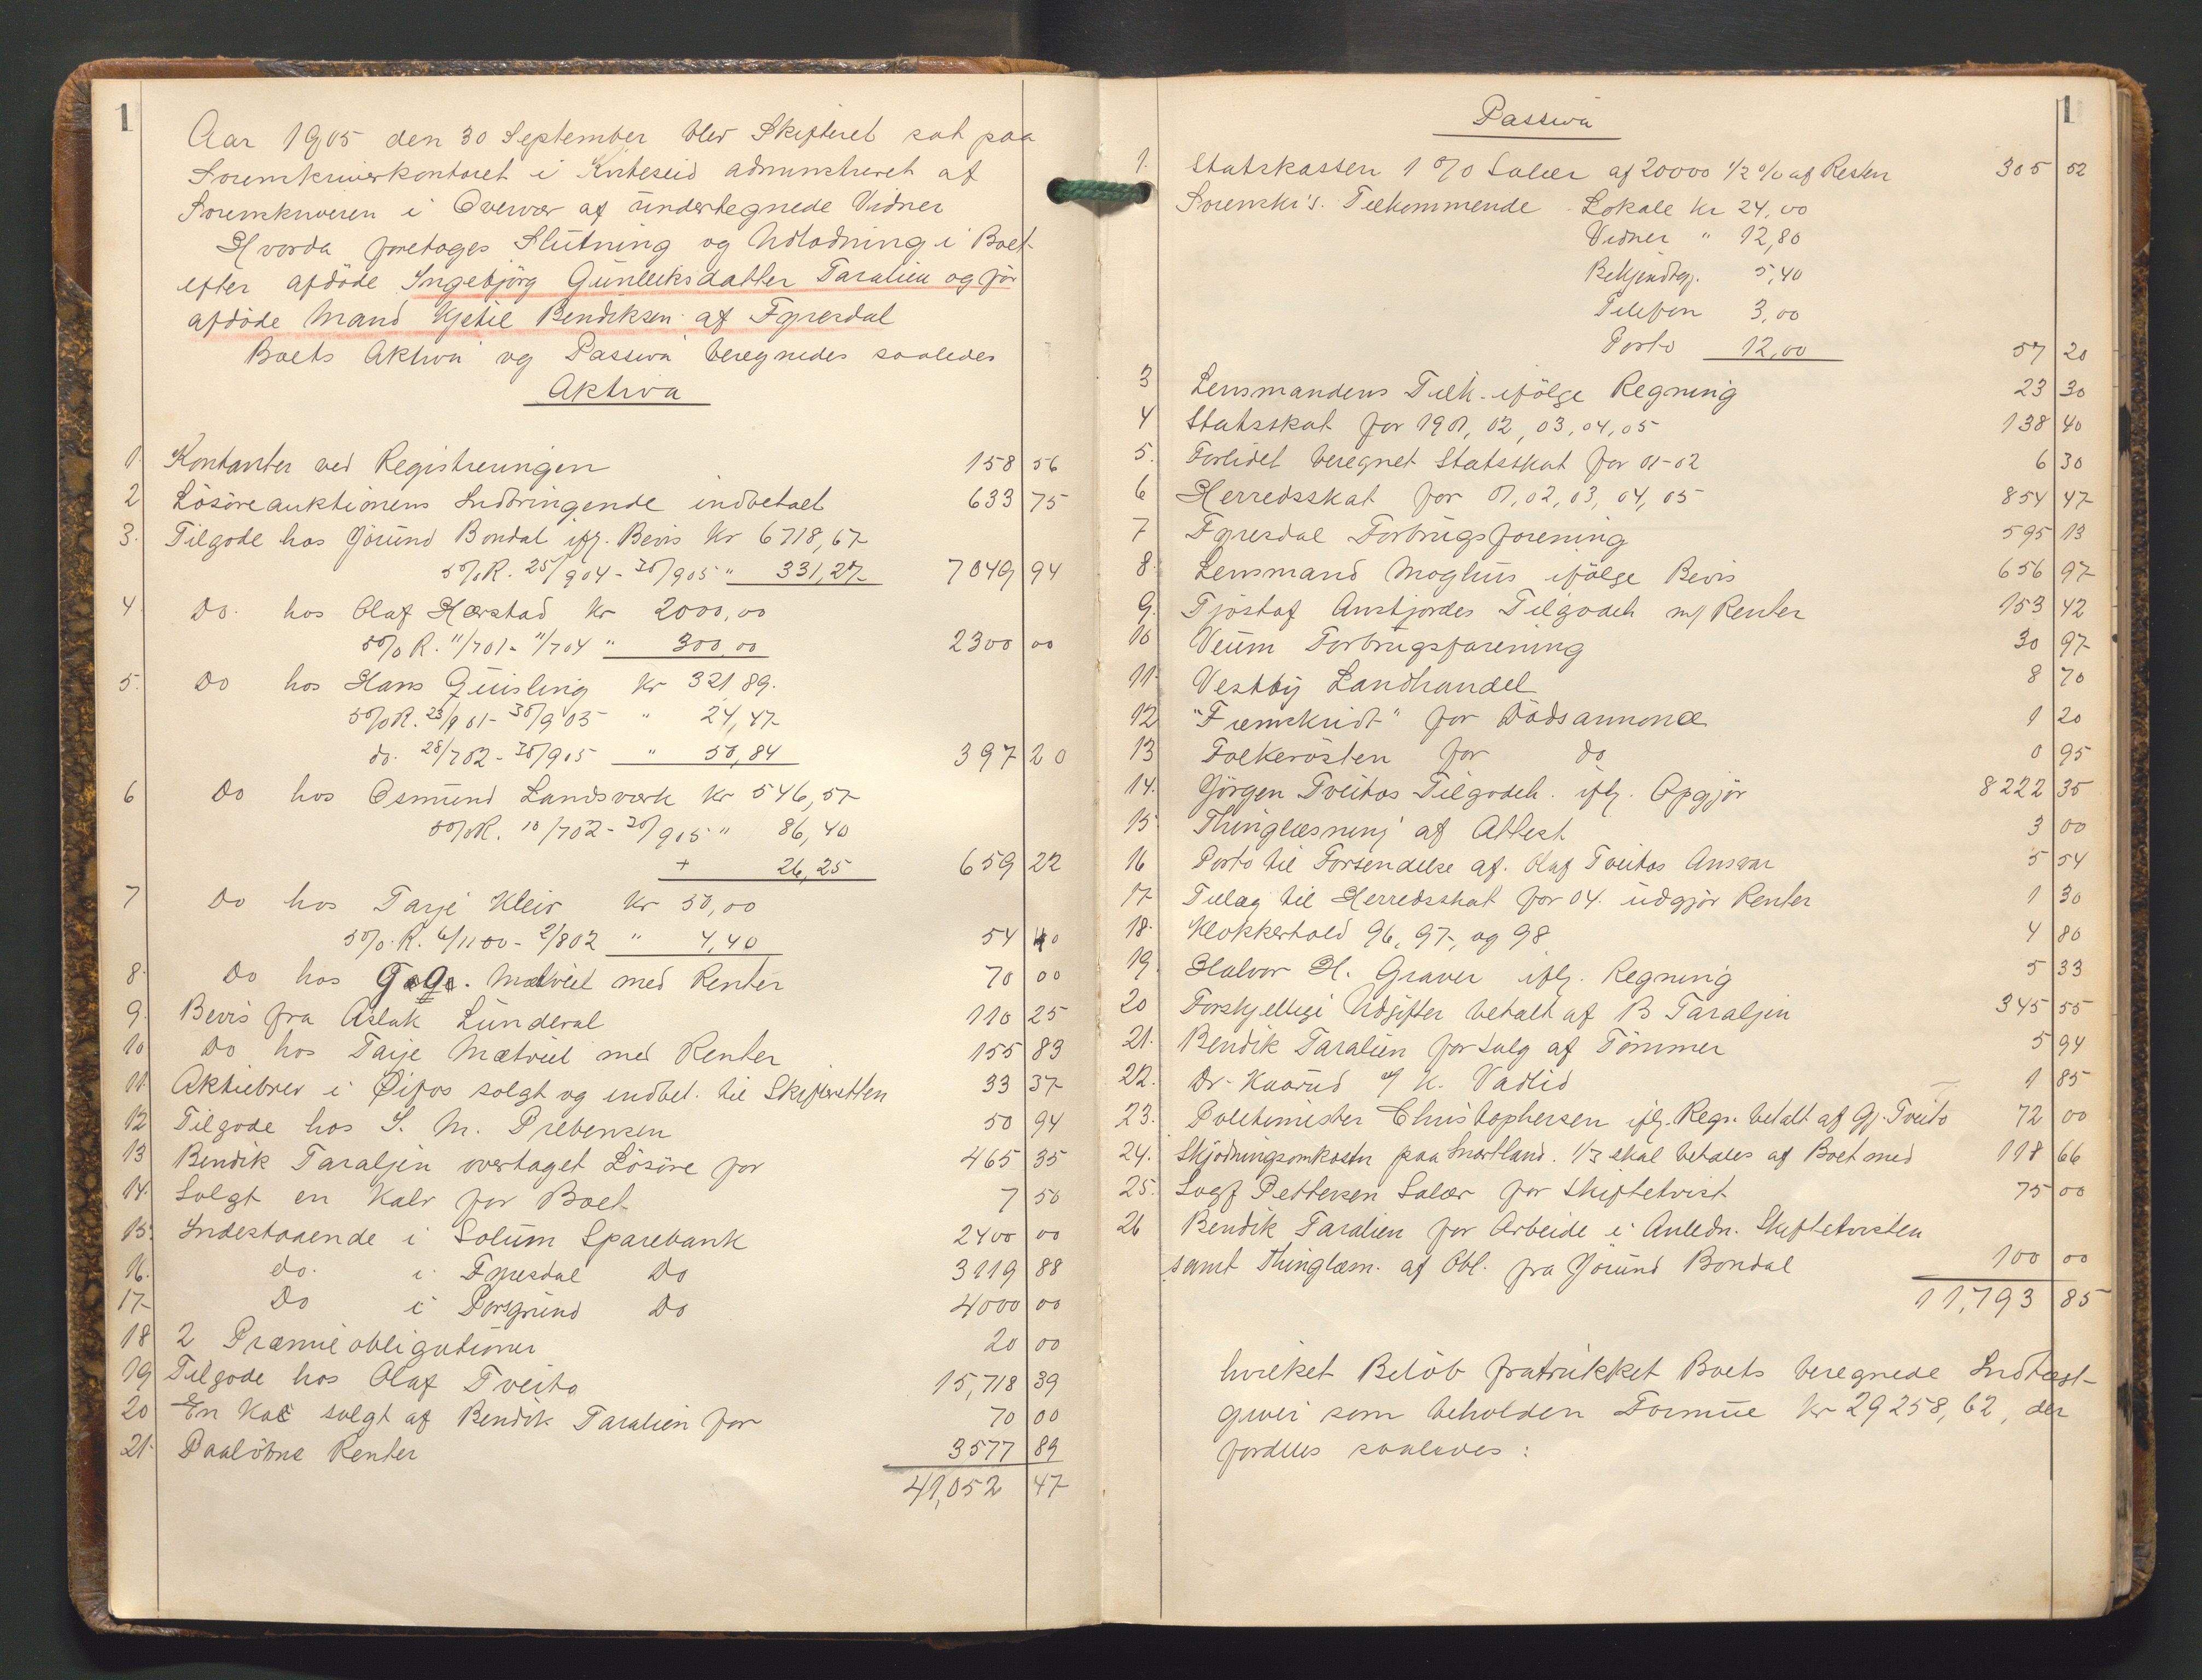 1
Aar 1905 den 30 September blev Skifteret sat paa
Sorenskriverkontoret i Kviteseid administreret af
Sorenskriveren i Overvær af undertegnede Vidner
Hvorda foretoges Slutning og Udlodning i Boet
efter afdöde Ingebjörg Gunleiksdatter Taralien og för
afdöde Mand Kjetil Bendiksen af Fyresdal
Boets Aktiva og Passiva beregnedes saaledes
Aktiva
1. Kontanter ved Registreringen 158 56
2 Lösöreauktionens Indbringende indbetalt 633 75
3. Tilgode hos Jörund Bondal iflg. Bevis Kr 6718,67
5% R. 25/9 04 - 30/9 05 " 331,27 7049 94
4 Do. hos Olaf Hærstad Kr 2000,00
5% R. 11/7 01 - 11/7 04 " 300,00 2300 00
5. Do hos Hans Quisling Kr 321,89.
5% R. 23/9 01 - 30/9 03 " 24,47
do. 28/7 02 - 30/9 05 " 50,84 397 20
6 Do hos Osmund Landsverk Kr 546,57
5% R. 10/7 02 - 30/9 05 " 86,40
+ 26,25 659 22
7 Do hos Tarje Kleiv Kr 50,00
5% R. 6/11 00 - 2/8 02 " 4,40 54 40
8. Do hos G. G. Mætveit med Renter 70 00
9. Bevis fra Aslak Lunderal 110 25
10 Do hos Tarje Mætveit med Renter 155 83
11. Aktiebrev i Øifos solgt og indbet. til Skifteretten 33 37
12 Tilgode hos S. M. Prebensen 50 94
13 Bendik Taraljen overtaget Lösöre for 465 35
14. Solgt en Kalv for Boet 7 50
15. Indestaaende i Solum Sparebank 2400 00
16. do. i Fyresdal Do 3119 88
17 Do i Porsgrund Do 4000 00
18 2 Præmieobligationer 20 00
19 Tilgode hos Olaf Tveito 15,718 39
20 En Ko solgt af Bendik Taralien for 70 00
21. Paalöbne Renter 3577 89
41,052 47
1
Passiva
1. Statskassen 1 % Salær af 20000 1/2 % af Resten 305 52
Sorenskr's. Tilkommende Lokale Kr 24,00
Vidner " 12,80
Bekjendtgj. 5,40
Telefon 3,00
Porto 12,00 57 20
3 Lensmandens Tilk. ifölge Regning 23 30
4 Statsskat for 1901, 02, 03, 04, 05 138 40
5. Forlidet beregnet Statsskat for 01-02 6 30
6 Herredsskat for 01, 02, 03, 04, 05 854 47
7 Fyresdal Forbrugsforening 595 13
8. Lensmand Moghus ifölge Bevis 656 97
9. Tjöstof Austjordes Tilgodeh m/ Renter 153 42
10 Veum Forbrugsforening 30 97
11. Vestby Landhandel 8 70
12 "Fremskridt" for Dödsannonce 1 20
13 Folkerösten for do 0 95
14. Jörgen Tveitos Tilgodeh. iflg. Opgjör 8222 35
15 Thinglæsning af Attest 3 00
16 Porto til Forsendelse af. Olaf Tveitos Ansvar 5 54
17 Tillæg til Herredsskat for 04. udgjör Renter 1 30
18. Klokkertold 96, 97, og 98 4 80
19. Halvor H. Graver iflg. Regning 5 33
20 Forskjellige Udgifter betalt af B Taraljen 345 55
21. Bendik Taralien for Salg af Tömmer 5 94
22. Dr. Kaarud v/ K. Vadlid 1 85
23. Politimester Christophersen iflg. Regn. betalt af Gj. Tveito 72 00
24. Skjödningsomkostn paa Snartland. 1/3 skal betales af Boet med 118 66
25. Sagf Pettersen Salær for Skiftetvist 75 00
26 Bendik Taralien for Arbeide i Anledn. Skiftetvisten
samt Thinglæsn. af Obl. fra Jörund Bondal 100 00
11,793 85
hvilket Belöb fratrukket Boets beregnede Indtægt
giver som beholden Formue Kr 29258,62, der
fordeles saaledes: